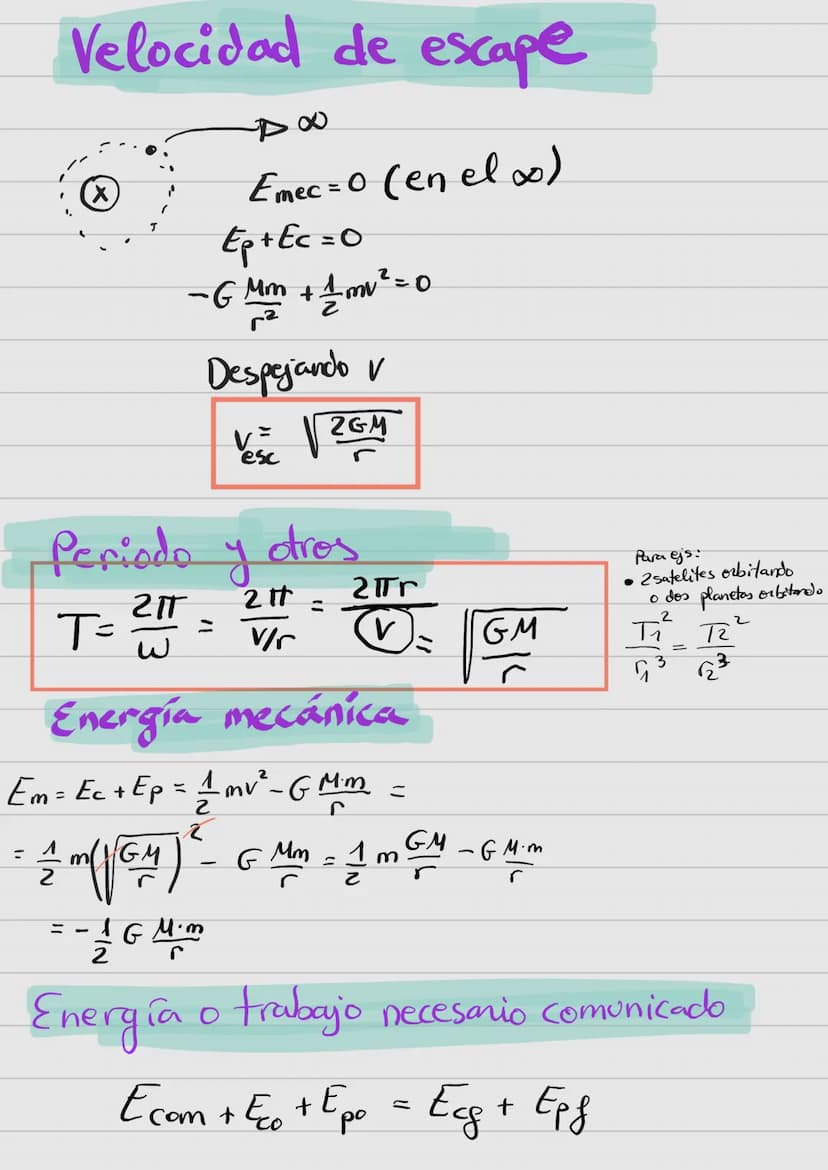 Velocidad de escape
∞
x
Emec = 0 (en el ∞)
Ep + Ec = 0
-G Mm/r² + 1/2 mv² = 0
Despejando v
Vesc = √(2GM/r)
Periodo y otros
T = 2π/ω = 2π/(v/r) = 2πr/v = √(GM/r)
Para ejs:
• 2 satelites orbitando
o dos planetas orbitando
T₁²/r₁³ = T₂²/r₂³
Energía mecánica
Em = Ec + Ep = 1/2 mv² - G M·m/r =
= 1/2 m(√(GM/r))² - G Mm/r = 1/2 m GM/r - G M·m/r
= - 1/2 G M·m/r
Energía o trabajo necesario comunicado
Ecom + Eco + Epo = Ecf + Epf